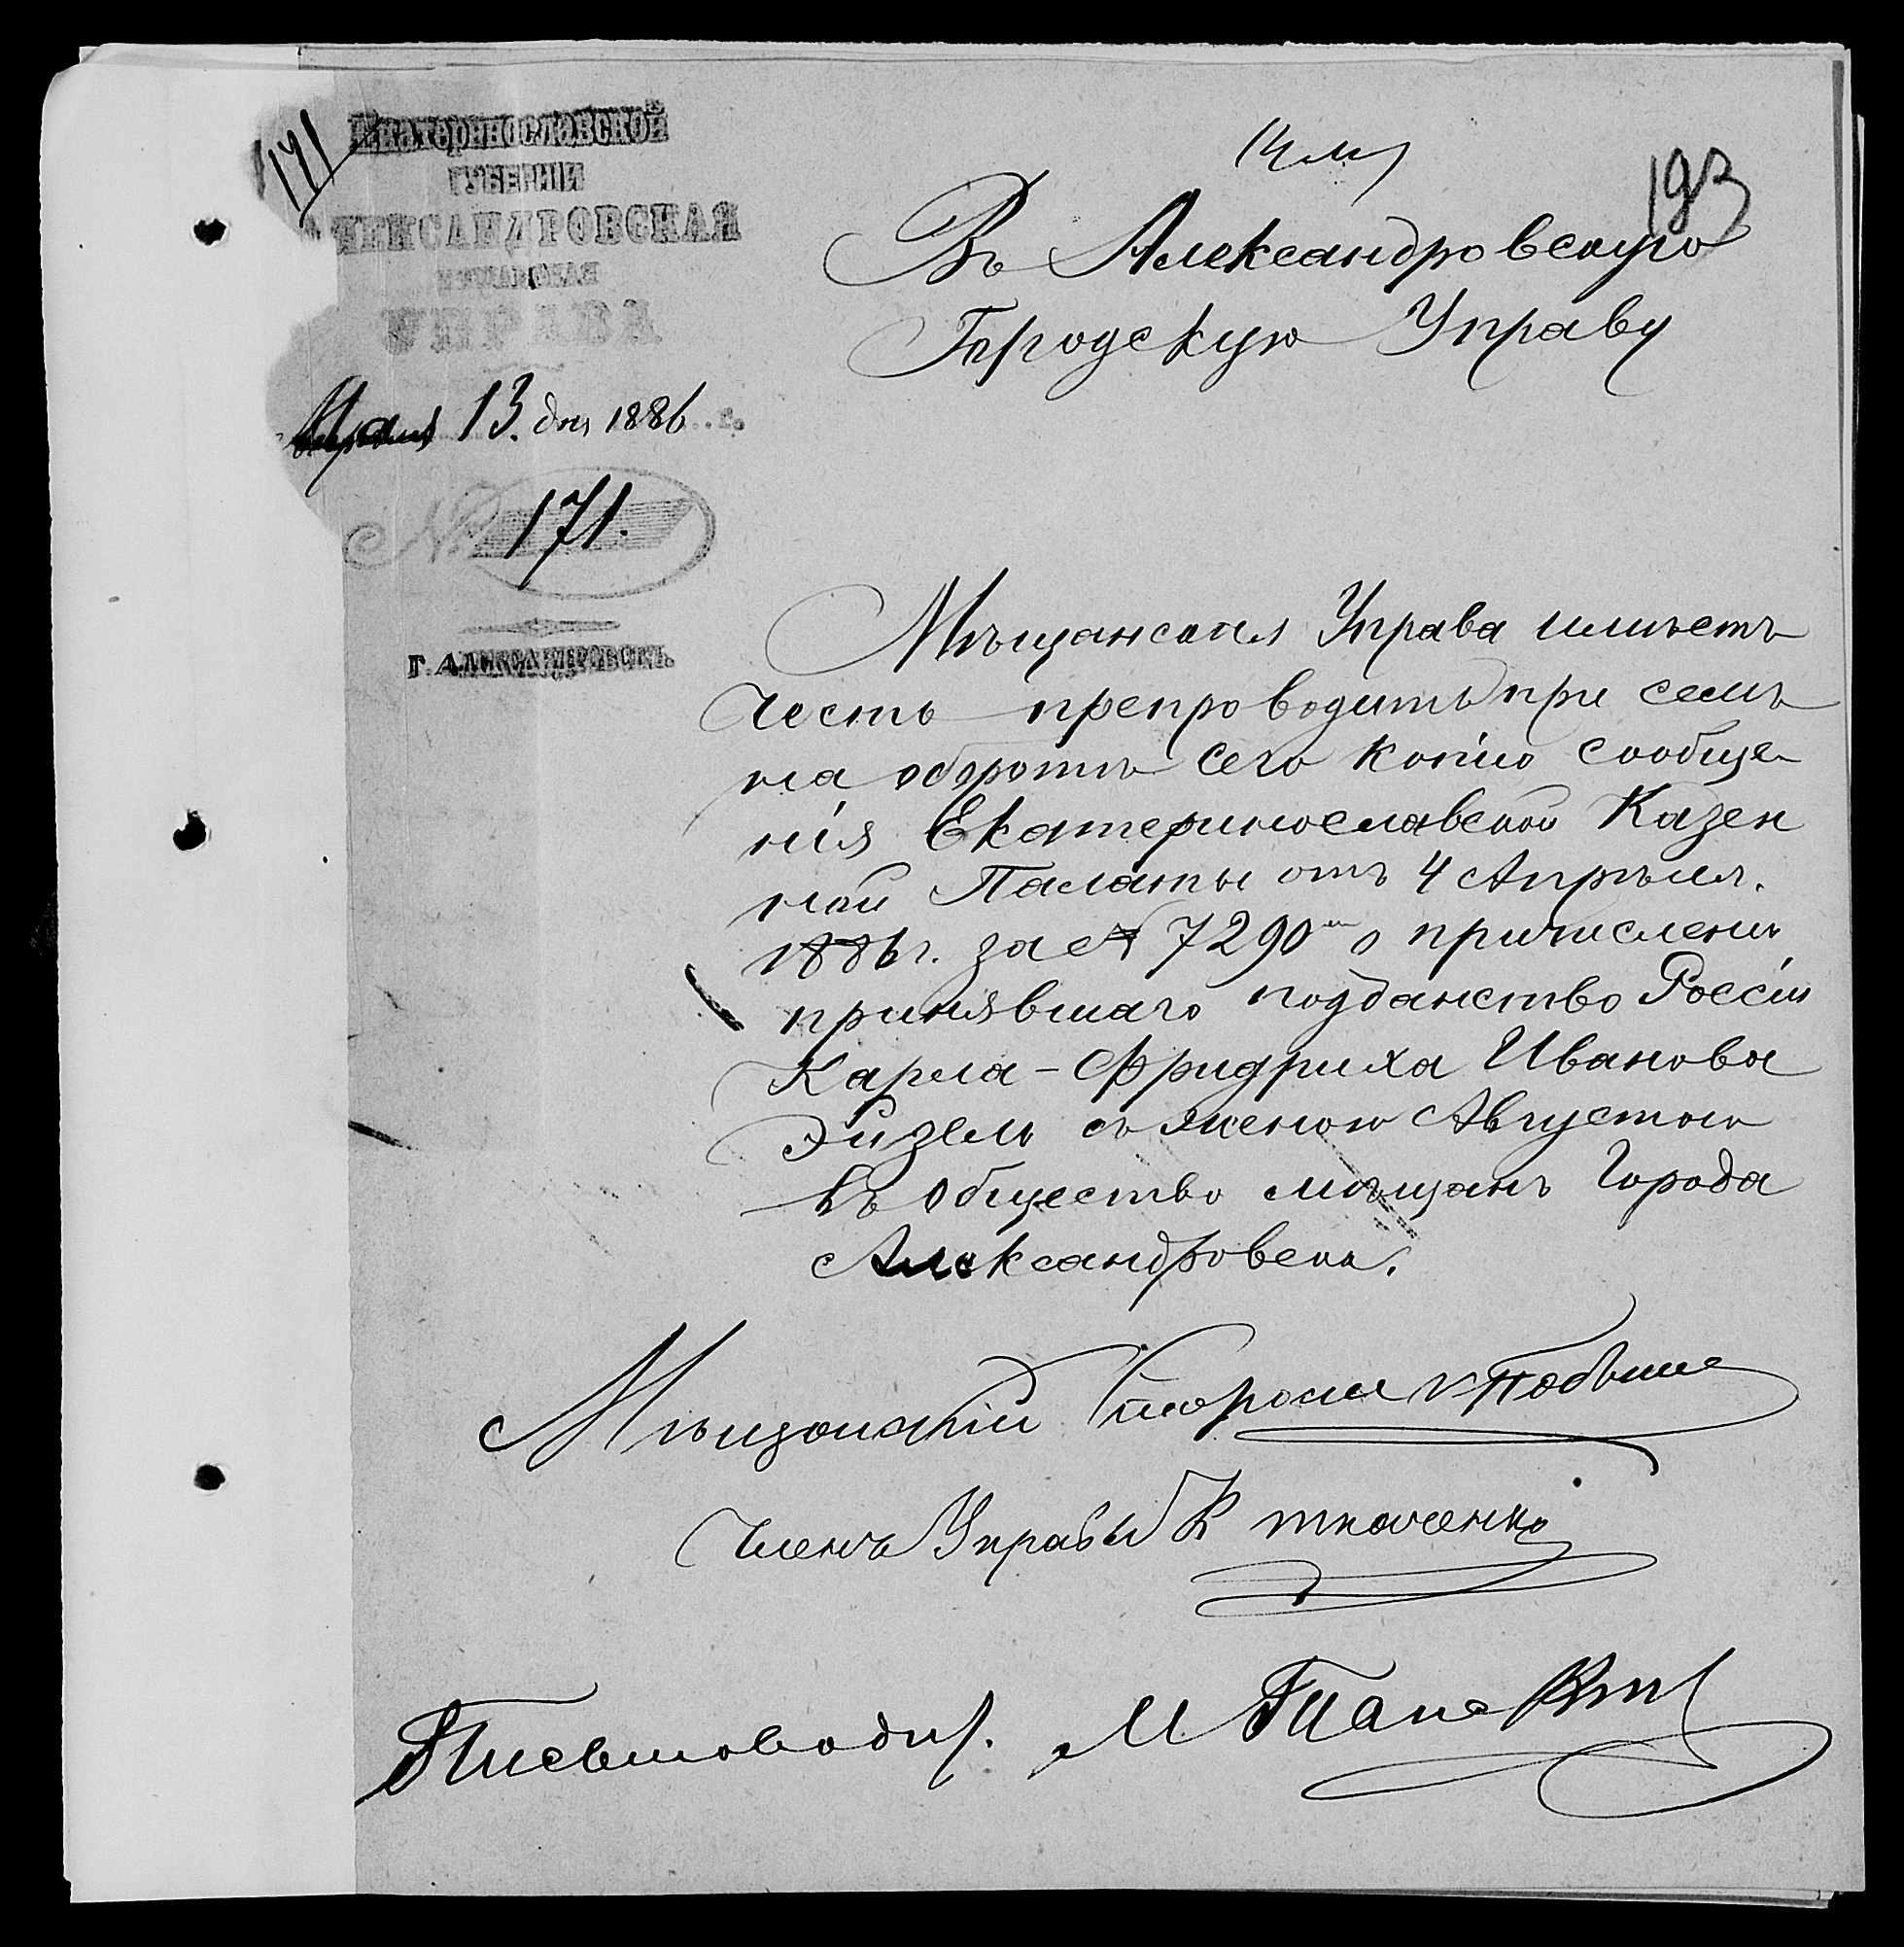 171
Екатеринославской
ГУБЕРНІИ
АЛЕКСАНДРОВСКАЯ
МѢЩАНСКАЯ
УПРАВА
Мая 13. дня 1886 г.
№ 171.
Г. АЛЕКСАНДРОВСКЪ.
193
Въ Александровскую
Городскую Управу
Мѣщанская Управа имѣетъ
честь препроводить при семъ
на оборотѣ сего копію сообще
нія Екатеринославской Казен
ной Палаты отъ 4 Апрѣля.
1886 г. за № 7290 о причисленіи
принявшаго подданство Россіи
Карла-Фридриха Иванова
Эйзель съ женою Августою
въ общество мѣщанъ Города
Александровска.
Мѣщанскій Староста
Членъ Управы К Ткаченко
Письмоводит. М